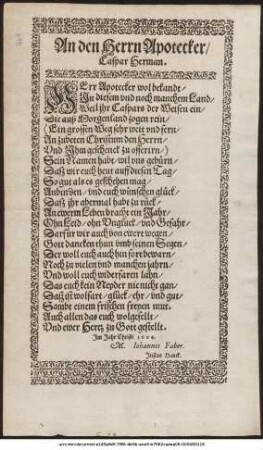 An den Herrn Apotecker/
Caspar Herman.
HErr Apotecker wol bekandt/
In diesem vnd noch manchem Land/
Weil jhr Caspars der Weisen ein/
Die auß Morgenland zogen rein/
(Ein grossen Weg sehr weit vnd fern/
An zubeten Christum den Herrn/
Vnd Ihm geschenck zu offerirn/)
Sein Namen habt/ wil vns gebürn/
Daß wir euch heut auff diesen Tag/
So gut als es geschehen mag/
Anbinden/ vnd euch wünschen glück/
Daß jhr abermal habt zu rück/
An ewerm Leben bracht ein Jahr/
Ohn Leid/ ohn Vnglück/ vnd Gefahr/
Darfür wir auch von ewert wegen/
Gott dancken thun vmb seinen Segen/
Der woll euch auch hin fort bewarn/
Noch zu vielen vnd manchen jahrn/
Vnd woll euch widerfaren lahn/
Das euch kein Neyder nie nicht gan/
Daß ist wolfart/ glück/ ehr/ vnd gut/
Sambt einem frischen freyen mut.
Auch allen das euch wolgefellt/
Vnd ewer Hertz zu Gott gestellt.
Im Jahr Christi 1604.
M. Iohannes Faber.